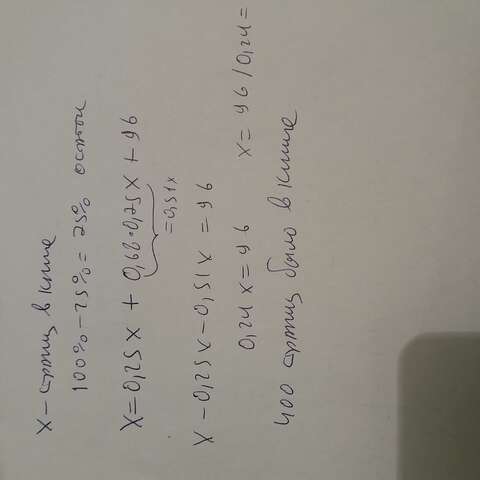 X - стрниц в книге
100% - 25% = 75% остаток
X = 0,25X + 0,68·0,75X + 96
= 0,51x
X - 0,25X - 0,51X = 96
0,24X = 96    X = 96/0,24 =
400 стрниц было в книге